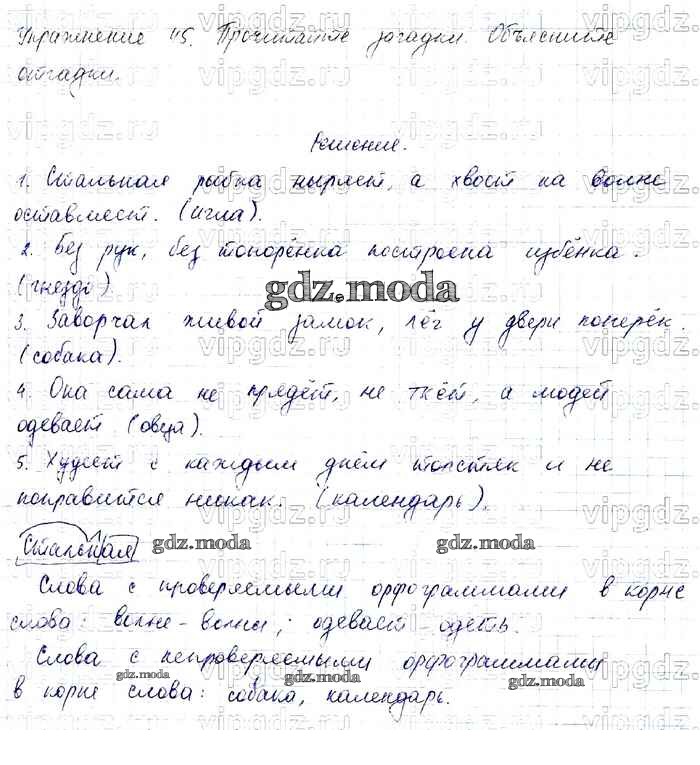 Упражнение 45. Прочитайте загадки. Объясните
отгадки.
Решение.
1. Стальная рыбка ныряет, а хвост на волне
оставляет. (игла).
2. Без рук, без топорёнка построена избёнка.
(гнездо)
gdz.moda
3. Заворчал живой замок, лёг у двери поперёк.
(собака).
4. Она сама не прядёт, не ткёт, а людей
одевает (овца).
5. Худеет с каждым днём толстяк и не
поправится никак. (календарь).
Стальная gdz.moda gdz.moda
Слова с проверяемыми орфограммами в корне
слова: волне - волны; одевает - одеть.
Слова с непроверяемыми орфограммами
gdz.moda gdz.moda gdz.moda
в корне слова: собака, календарь.